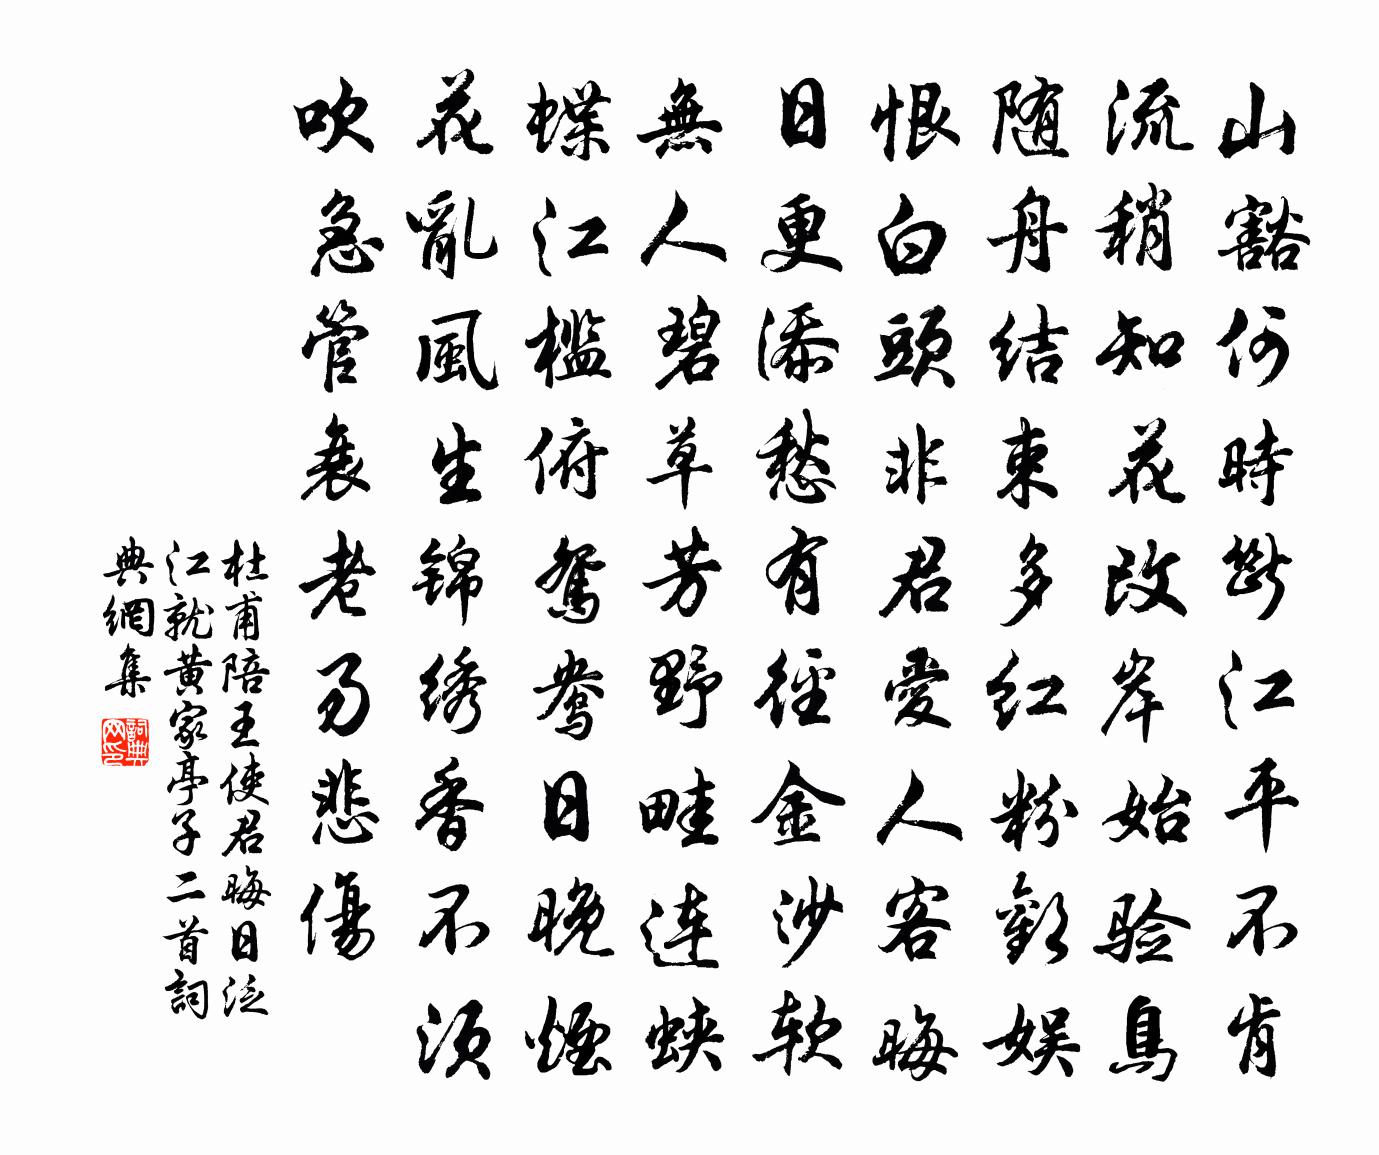 山豁何時斷江平不肯
流稍知花改岸始验鳥
随舟結束多红粉歡娱
恨白頭非君愛人客晦
日更添愁有徑金沙软
無人碧草芳野畦连蛺
蝶江檻俯鴛鴦日晚煙
花亂風生锦绣香不须
吹急管衰老易悲傷
杜甫陪王使君晦日泛
江就黄家亭子二首詞
典網集
詞典网印